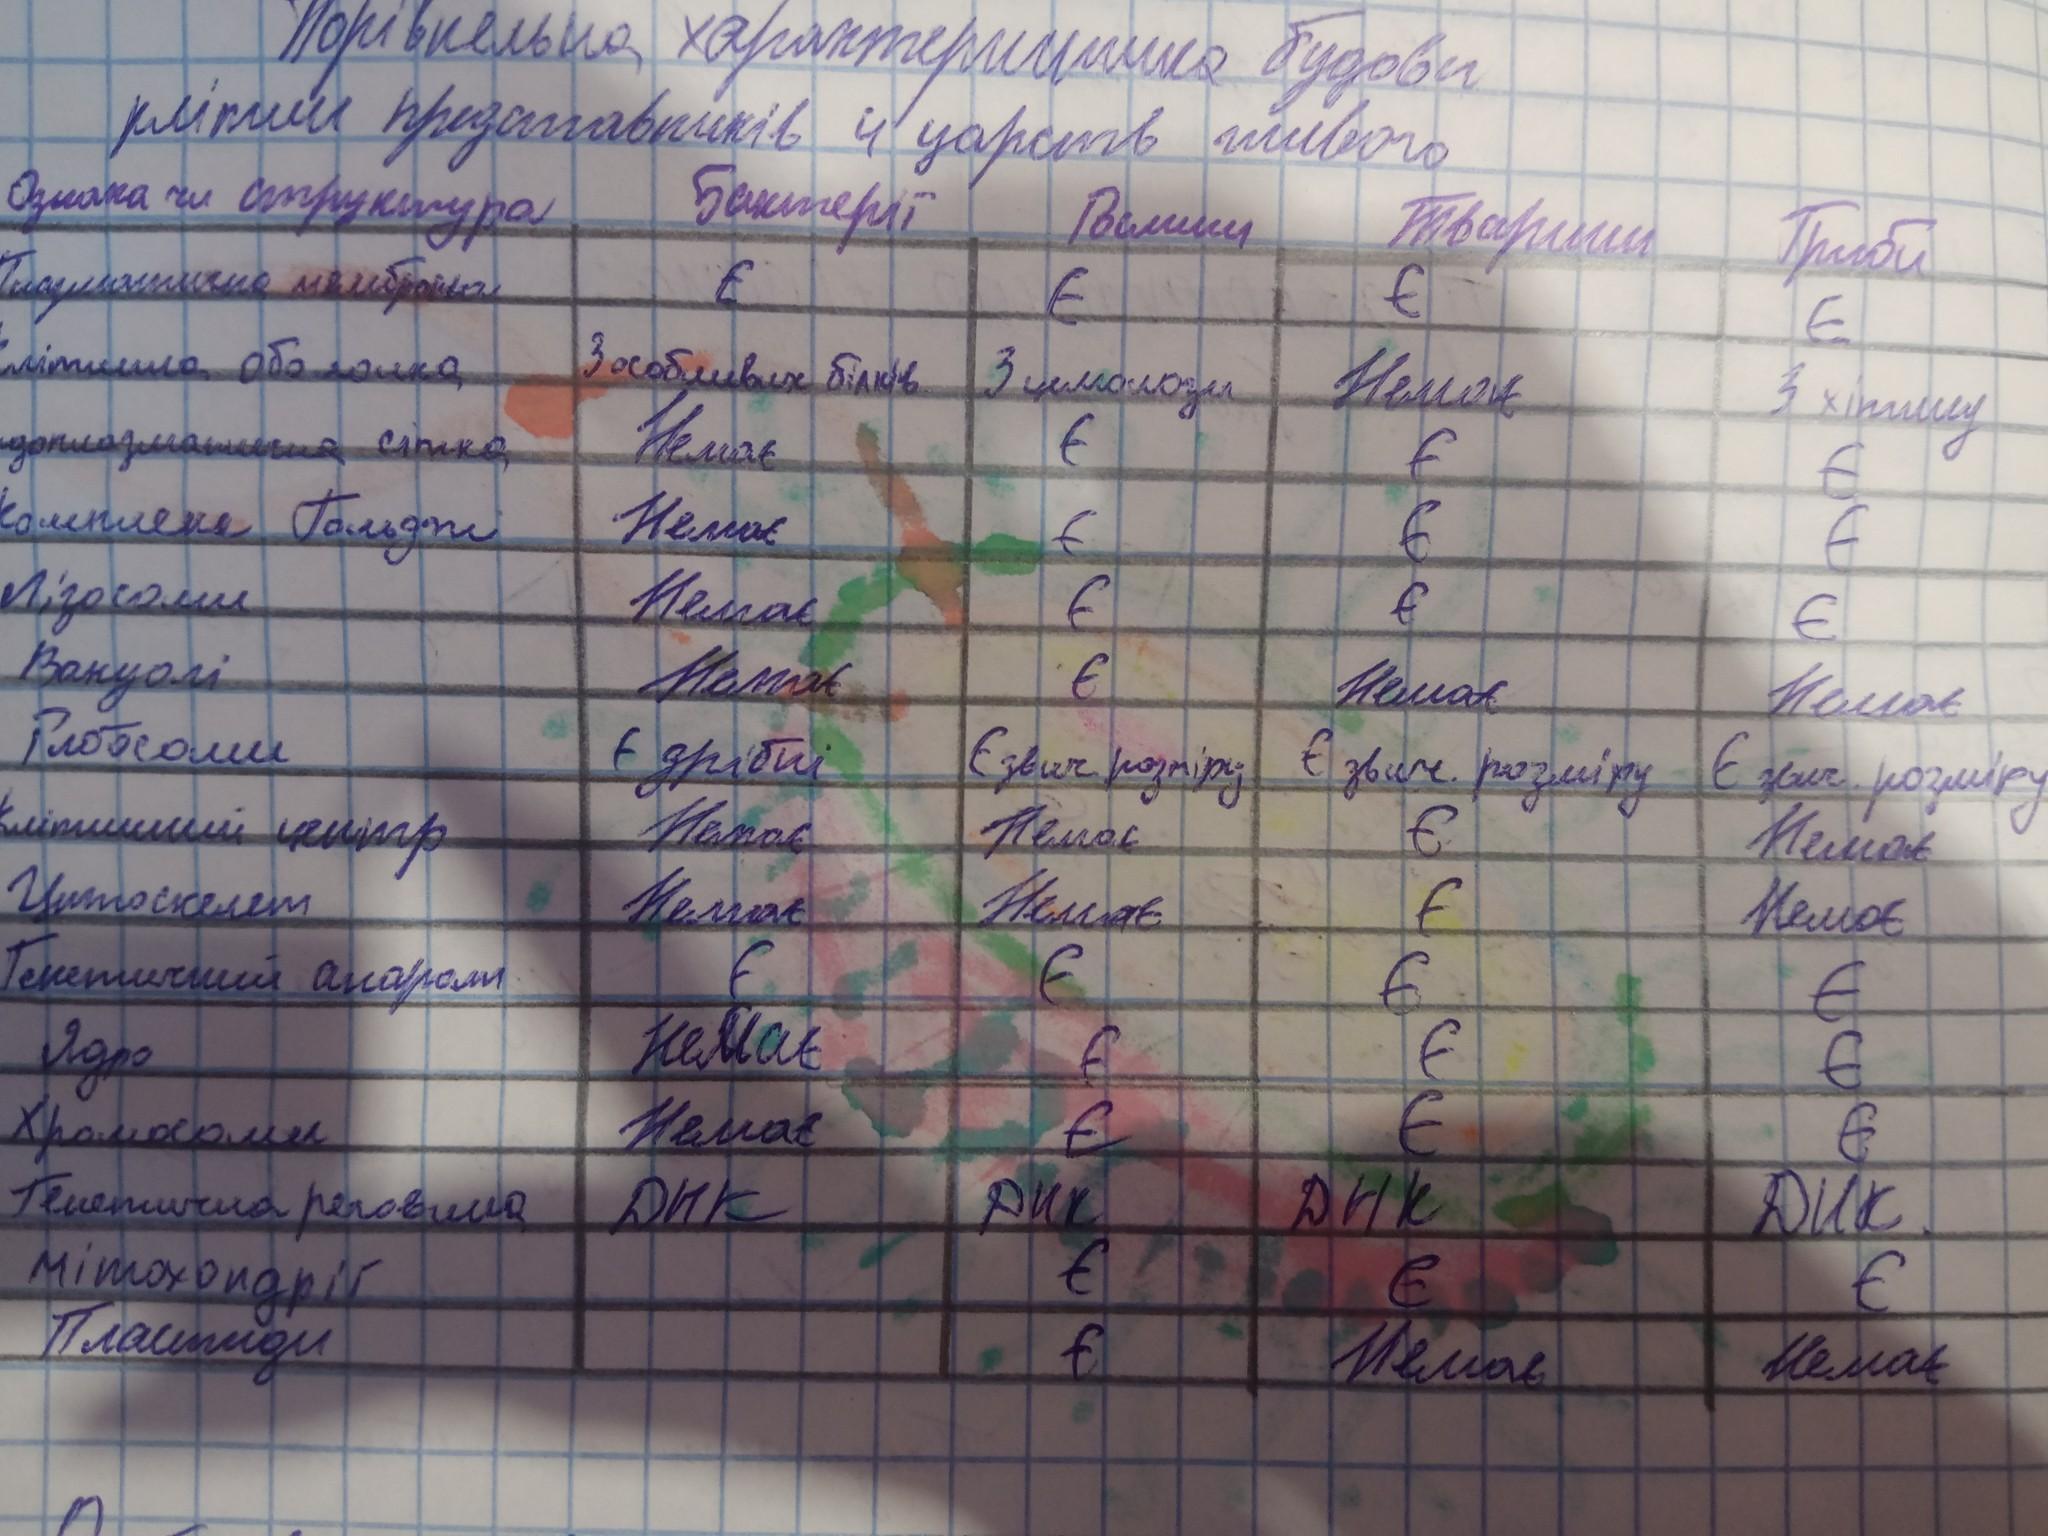 Порівнельна характеристика будови
клітин представників 4 царств живого
Ознака чи структура Бактерії Рослини Тварини Гриби
Плазматична мембрана Є Є Є Є
клітинна оболонка З особливих білків З целюлози Немає З хітину
ендоплазматична сітка Немає Є Є Є
Комплекс Гольджі Немає Є Є Є
Лізосоми Немає Є Є Є
Вакуолі Немає Є Немає Немає
Рибосоми Є дрібні Є звич. розміру Є звич. розміру Є звич. розміру
Клітинний центр Немає Немає Є Немає
Цитоскелет Немає Немає Є Немає
Генетичний апарат Є Є Є Є
Ядро Немає Є Є Є
Хромосоми Немає Є Є Є
Генетична речовина ДНК ДНК ДНК ДНК.
Мітохондрії Є Є Є
Пластиди Є Немає Немає